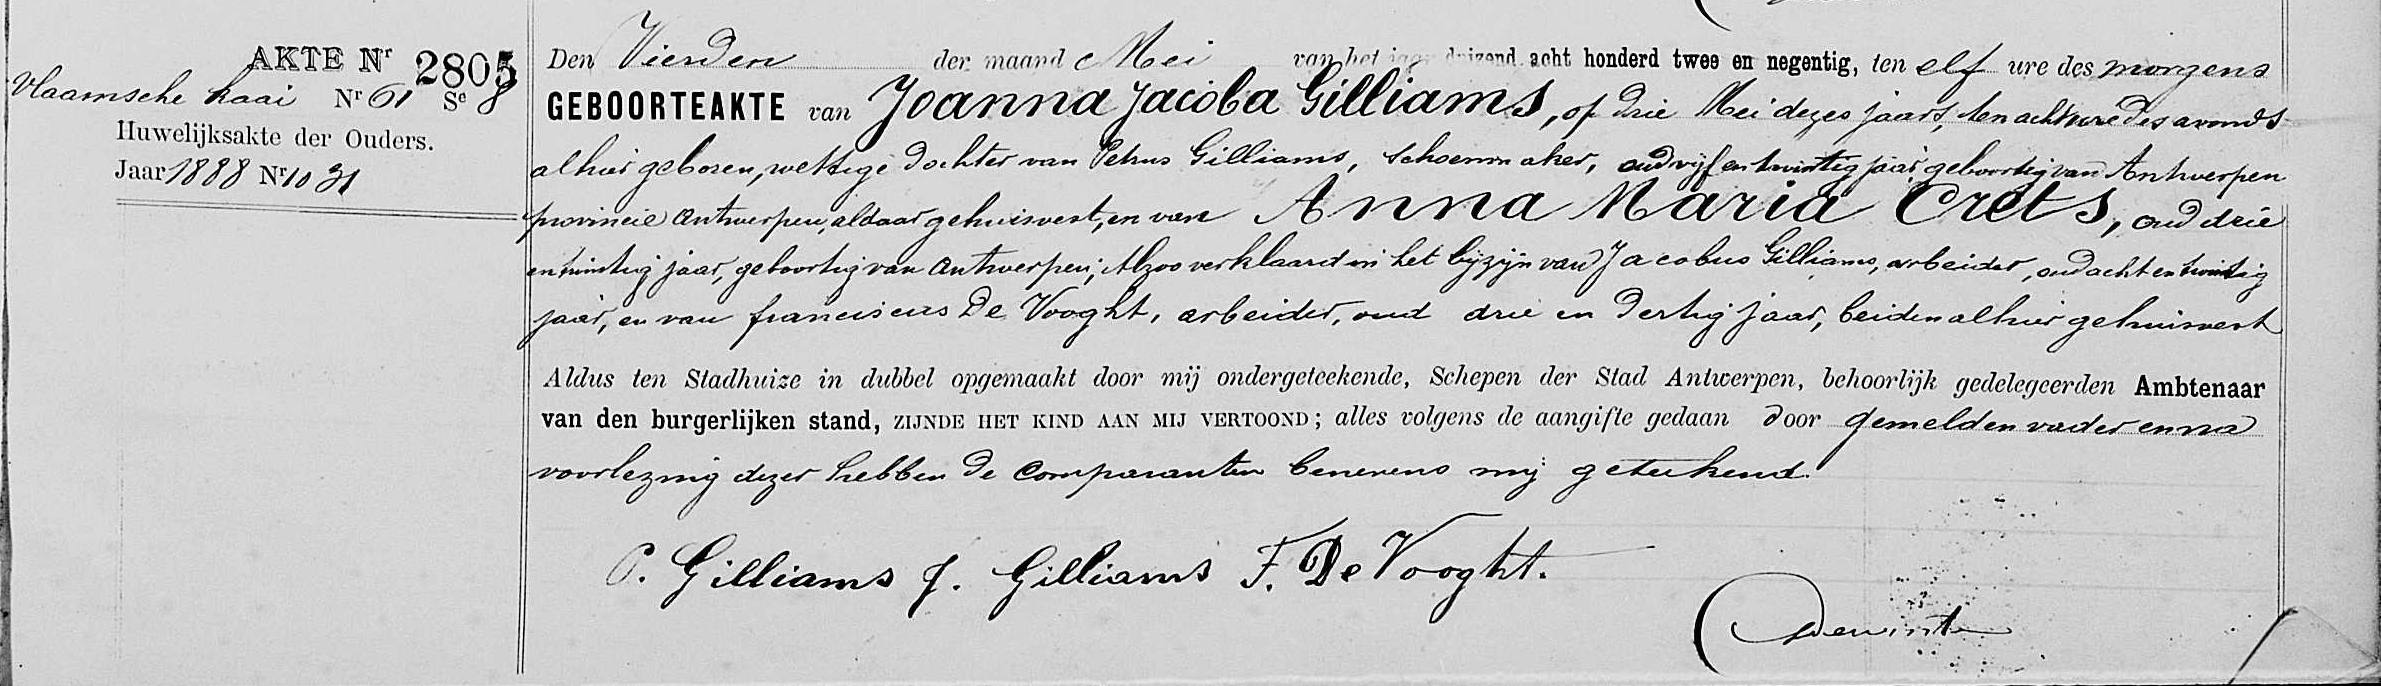 AKTE Nr 2805
Vlaamsche Kaai Nr 61 Se 8
Huwelijksakte der Ouders.
Jaar 1888 Nr 1031
Den Vierden der maand Mei van het jaar duizend acht honderd twee en negentig, ten elf ure des morgens
GEBOORTEAKTE van Joanna Jacoba Gilliams, op drie Mei dezes jaars, ten acht ure des avonds
alhier geboren, wettige dochter van Petrus Gilliams, schoenmaker, oud vijf en twintig jaar geboortig van Antwerpen
provincie Antwerpen, aldaar gehuisvest, en van Anna Maria Crets, oud drie
en twintig jaar, geboortig van Antwerpen; Alzoo verklaard in het bijzijn van Jacobus Gilliams, arbeider, oud acht en twintig
jaar, en van franciscus De Vooght, arbeider, oud drie en dertig jaar, beiden alhier gehuisvest
Aldus ten Stadhuize in dubbel opgemaakt door mij ondergeteekende, Schepen der Stad Antwerpen, behoorlijk gedelegeerden Ambtenaar
van den burgerlijken stand, ZIJNDE HET KIND AAN MIJ VERTOOND; alles volgens de aangifte gedaan door gemelden vader en na
voorlezing dezer hebben de comparanten benevens mij geteekend.
P. Gilliams J. Gilliams F. De Vooght.